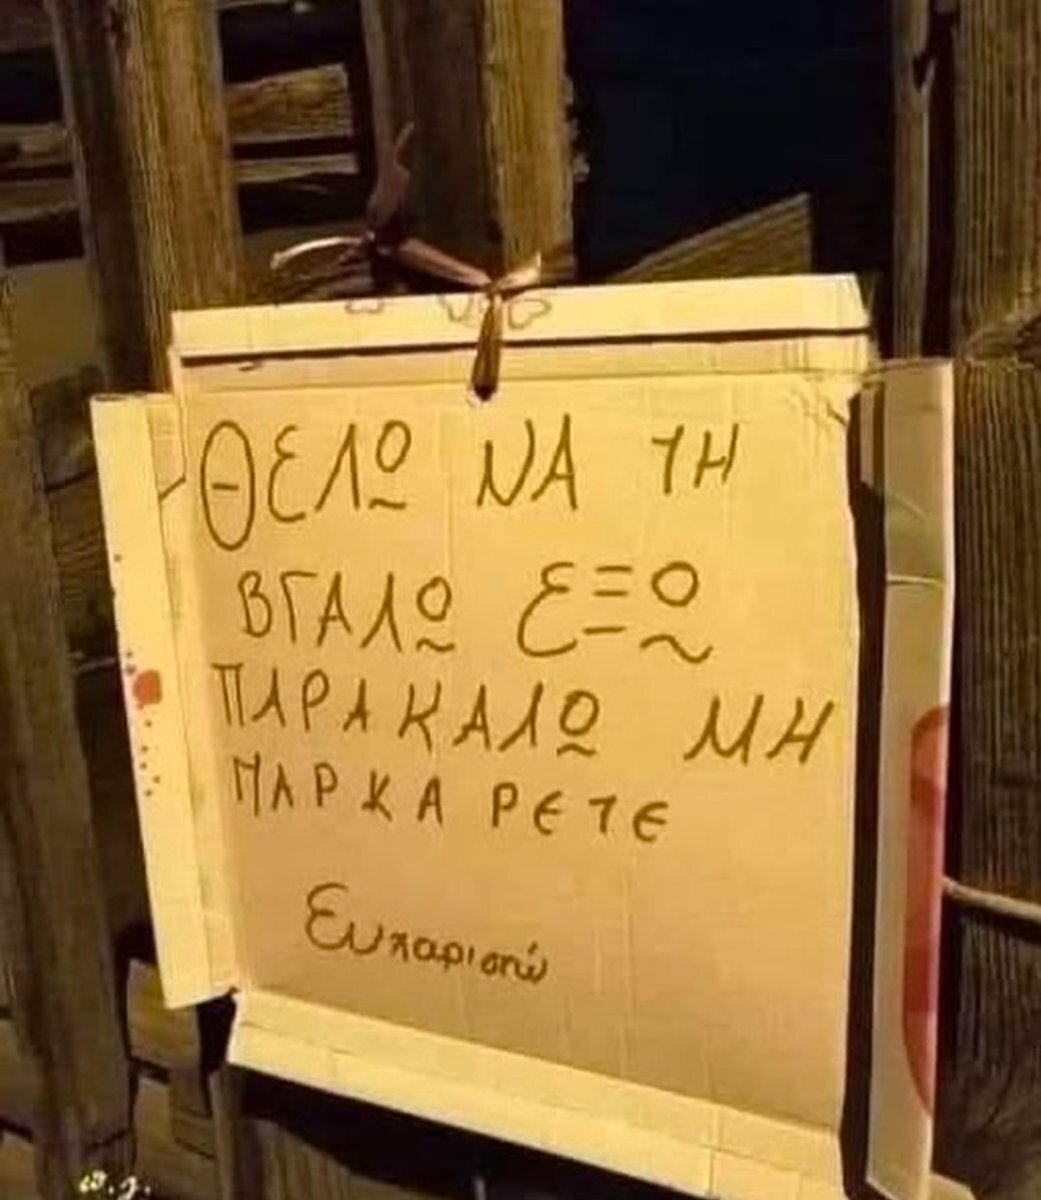 ΘΕΛΩ ΝΑ ΤΗ
ΒΓΑΛΩ ΕΞΩ
ΠΑΡΑΚΑΛΩ ΜΗ
ΠΑΡΚΑΡΕΤΕ
Ευχαριστώ